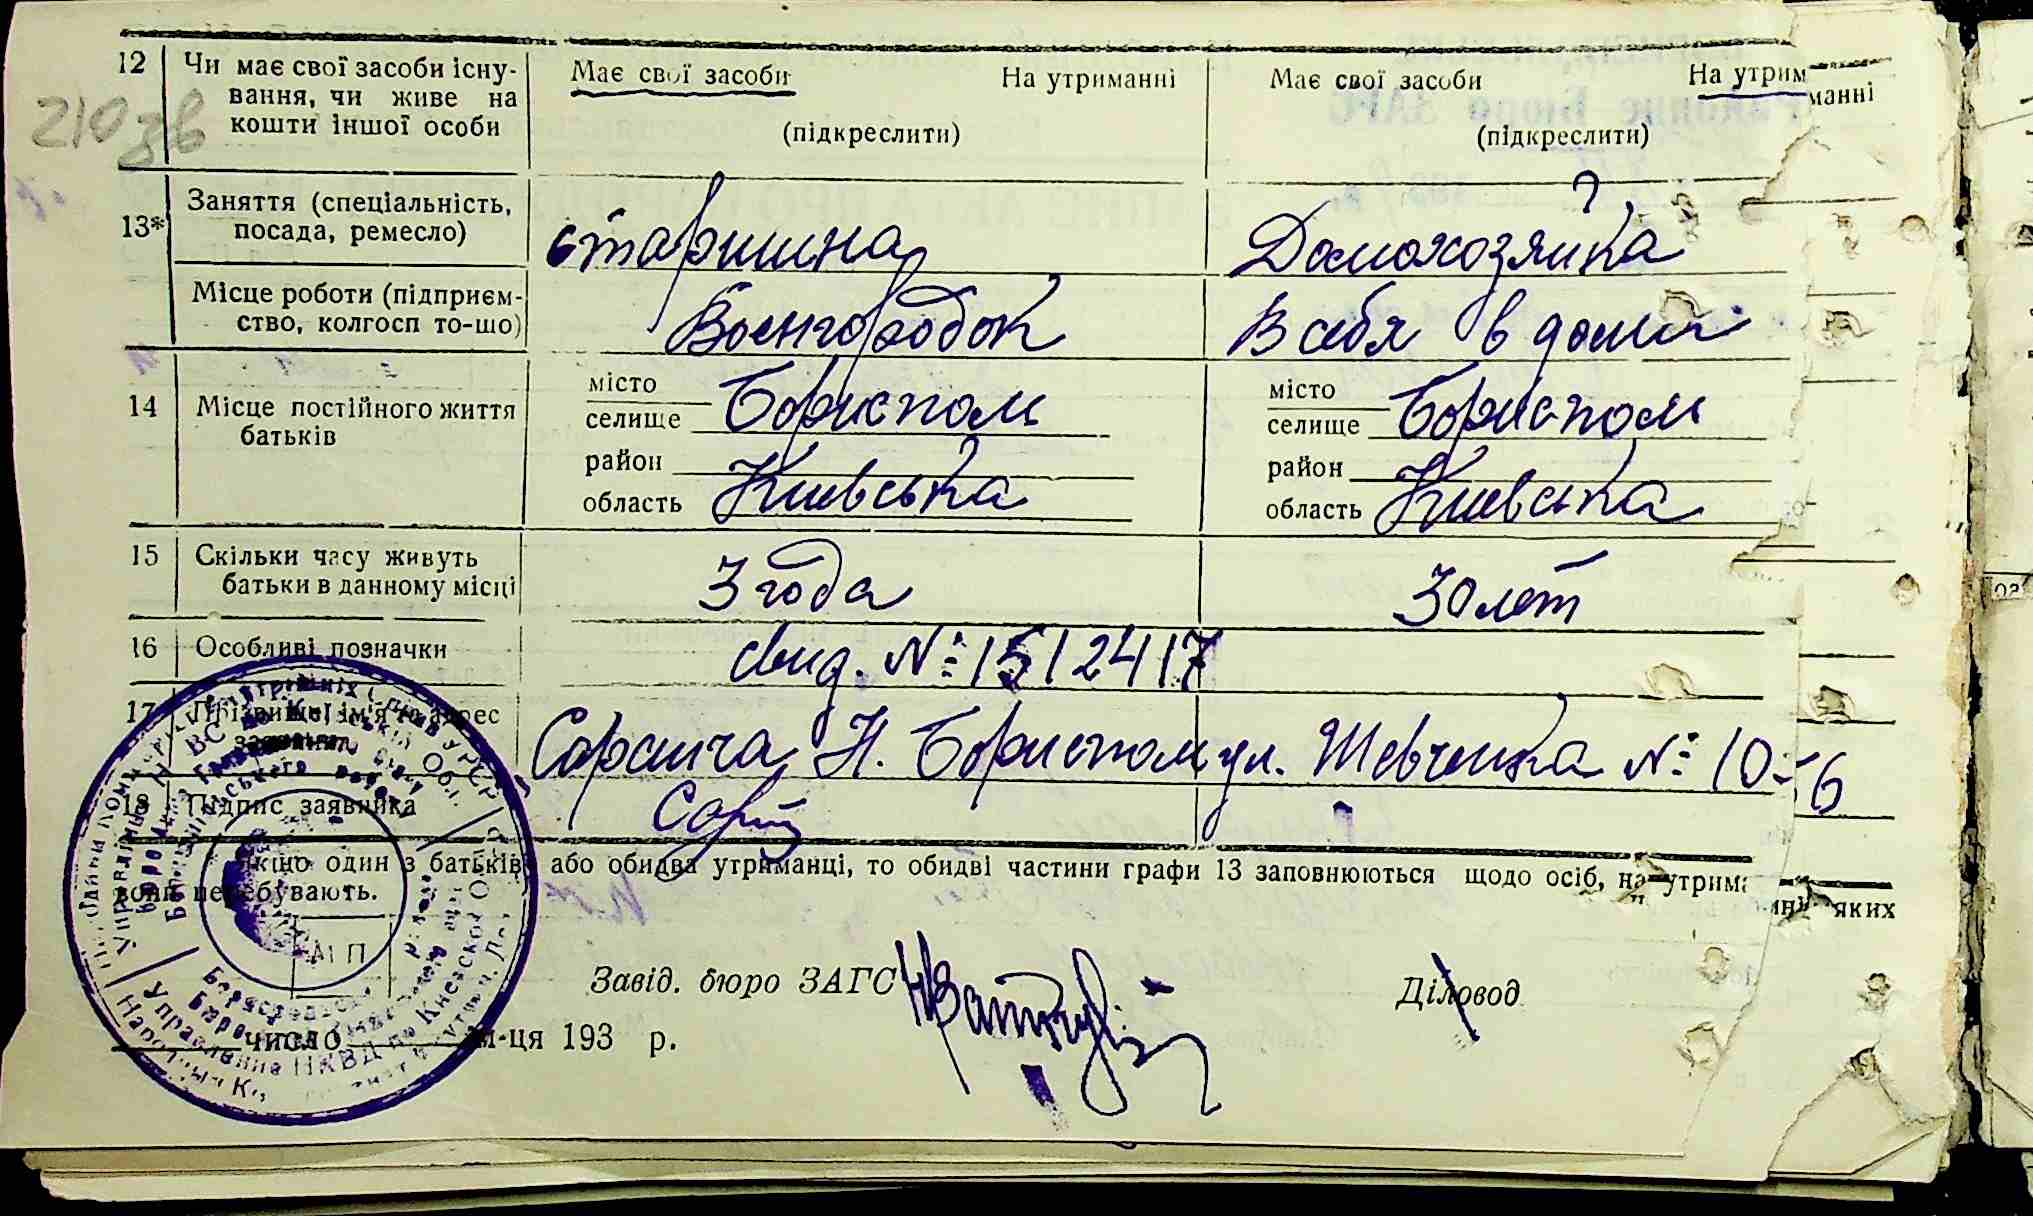 12 Чи має свої засоби існу- Має свої засоби На утриманні Має свої засоби На утрим
вання, чи живе на манні
210 зв кошти іншої особи (підкреслити) (підкреслити)
?
13* Заняття (спеціальність, старшина Домохозяйка
посада, ремесло)
Місце роботи (підприєм- Военгородок В себя в доми
ство, колгосп то-що)
14 Місце постійного життя місто Бориспом місто Бориспом
батьків селище селище
район район
область Киевська область Киевська
15 Скільки часу живуть 3 года 30 лет
батьки в данному місці
16 Особливі позначки свид. №1512417
17 Прізвище, ім'я та адрес Н. Бориспом ул. Шевченка № 10-6
заявника
18 Підпис заявника
Якщо один з батьків або обидва утриманці, то обидві частини графи 13 заповнюються щодо осіб, на утрима
нні яких
вони перебувають.
М П
Завід. бюро ЗАГС Діловод
число м-ця 193 р.
Управление НКВД по Киевской